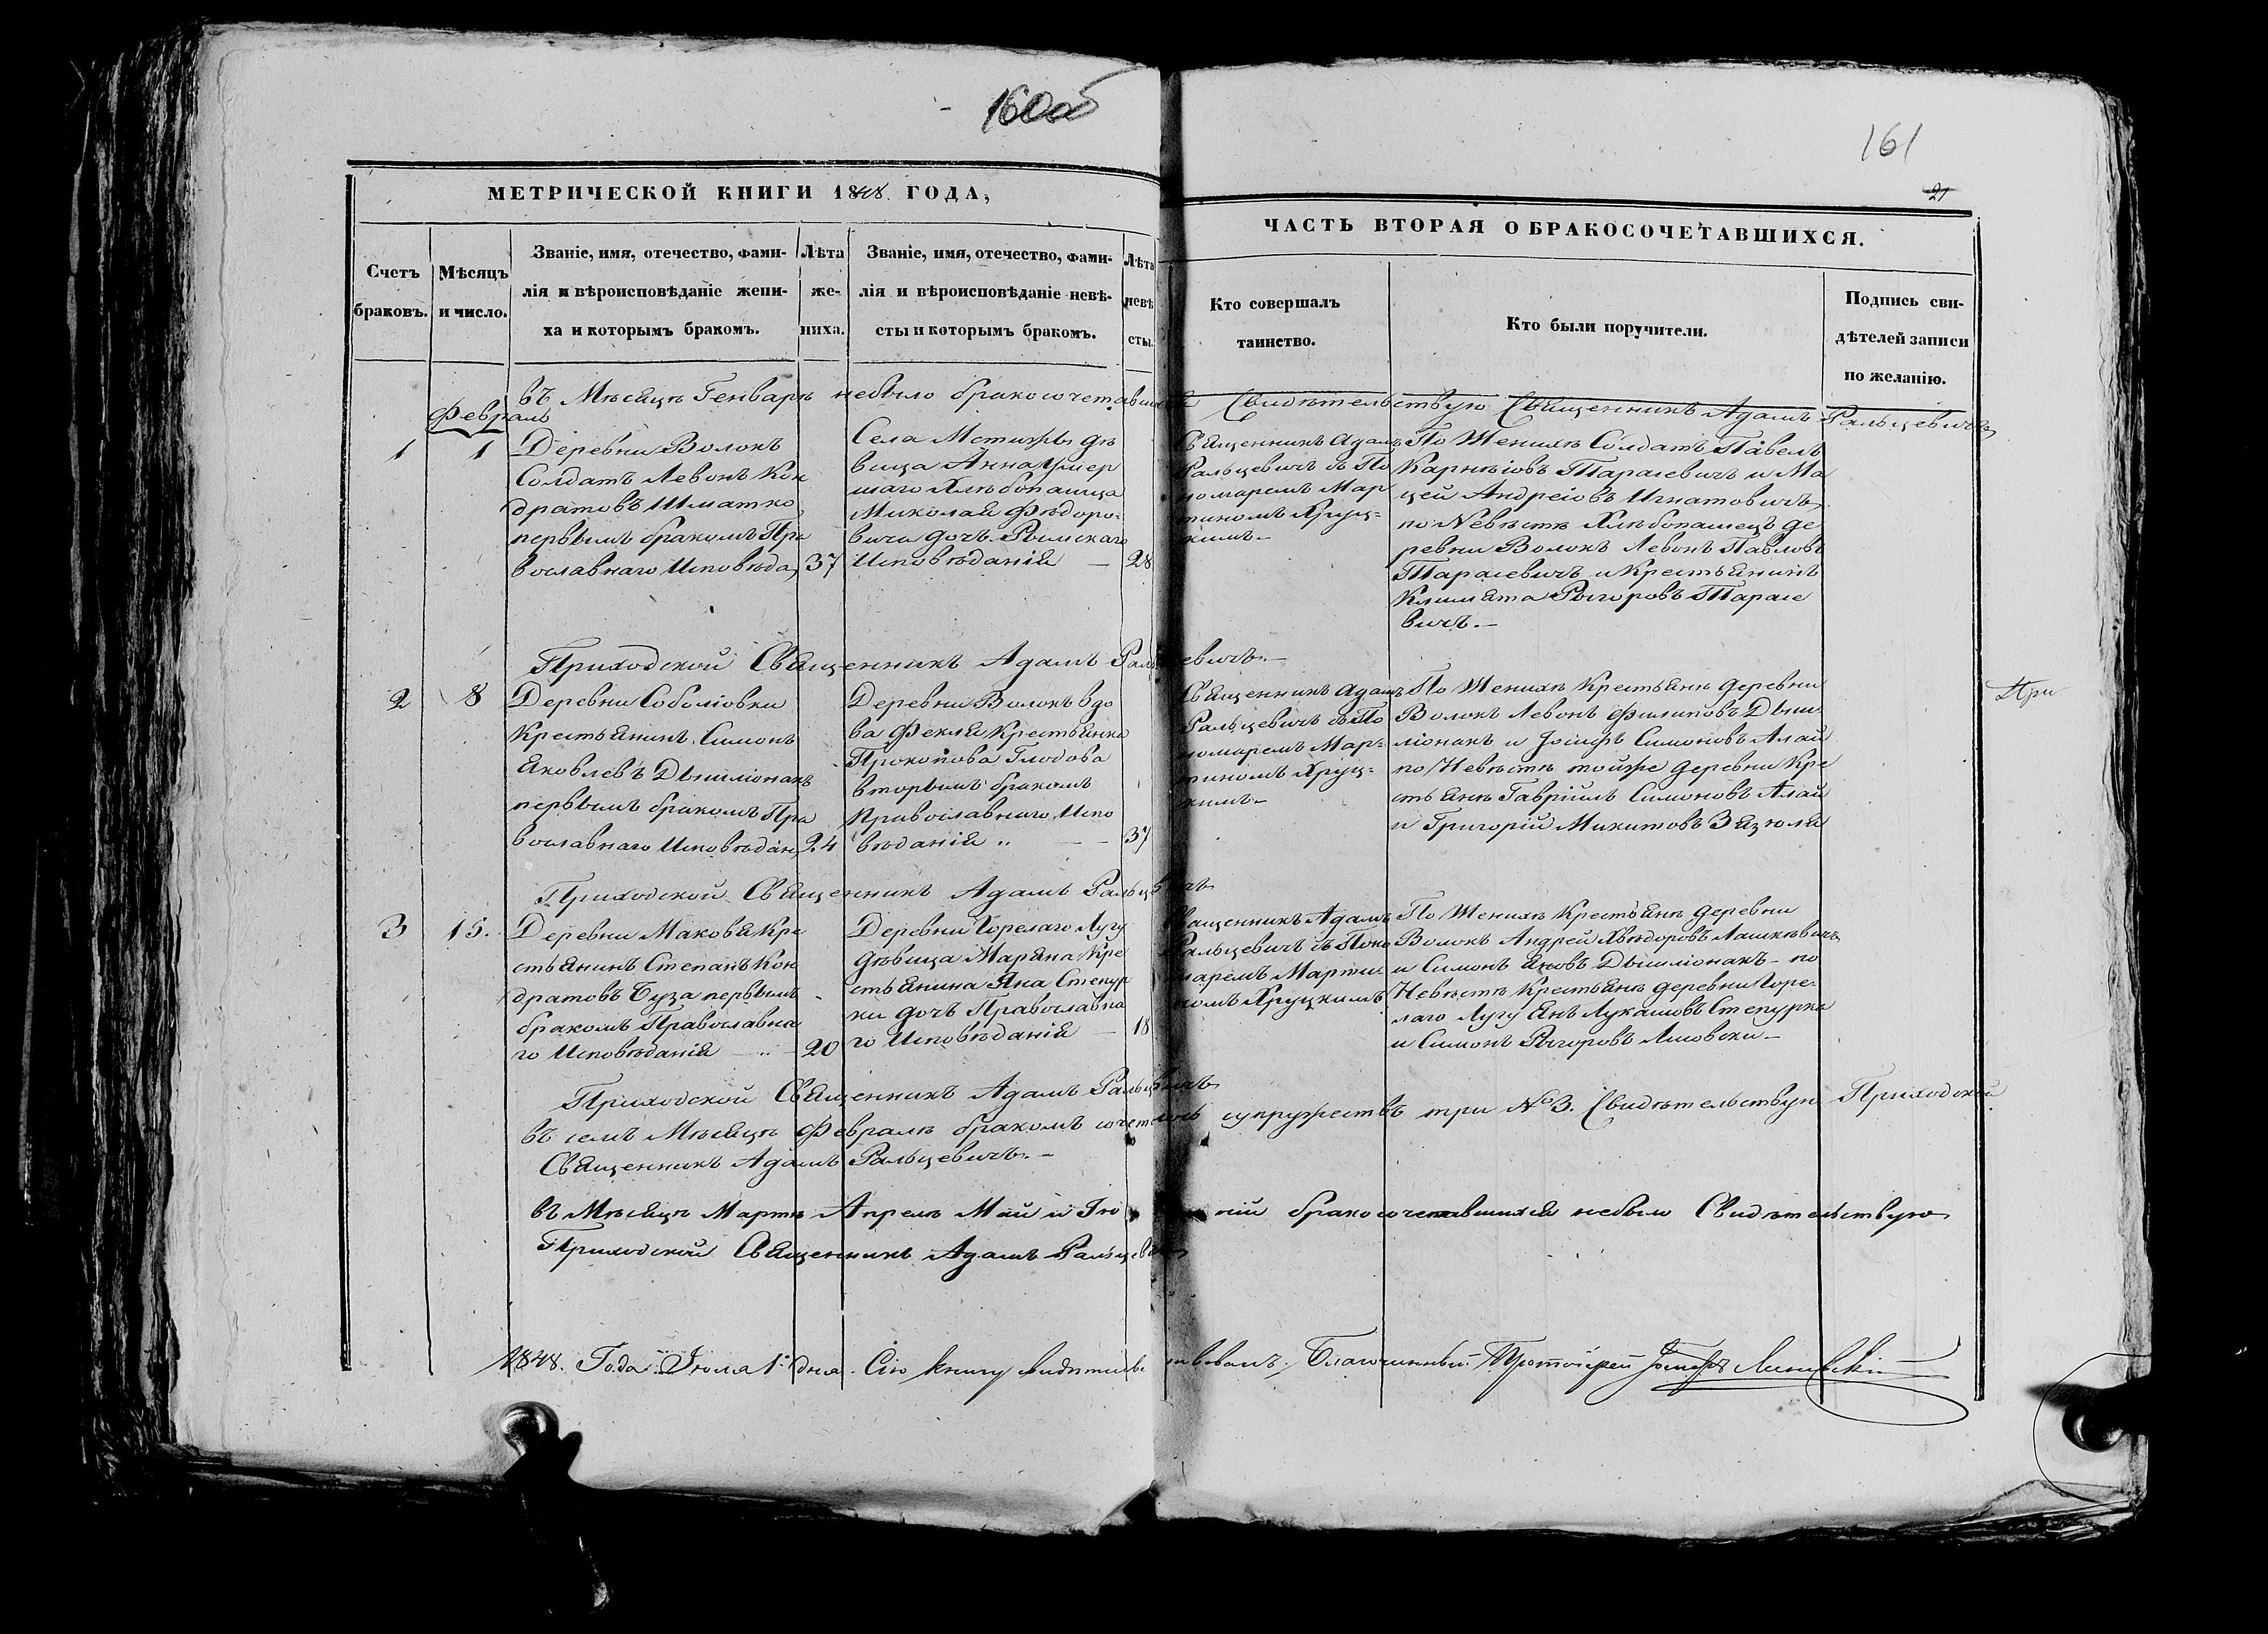 160об
161
21
МЕТРИЧЕСКОЙ КНИГИ 1848. ГОДА,
ЧАСТЬ ВТОРАЯ О БРАКОСОЧЕТАВШИХСЯ.
Счетъ
браковъ.
Мѣсяцъ
и число.
Званіе, имя, отечество, фами-
лія и вѣроисповѣданіе жени-
ха и которымъ бракомъ.
Лѣта
же-
ниха.
Званіе, имя, отечество, фами-
лія и вѣроисповѣданіе невѣ-
сты и которымъ бракомъ.
Лѣта
невѣ
сты.
Кто совершалъ
таинство.
Кто были поручители.
Подпись сви-
дѣтелей записи
по желанію.
въ Мѣсяцѣ Генварѣ небыло Свидѣтельствую Священникъ Адамъ Ральцевичъ
Февраль
1
1
Деревни Волокъ
Солдатъ Левонъ Кон
дратовъ Шматко
первымъ бракомъ Пра
вославнаго Исповѣда
37
Села Мстижъ дѣ
вица Анна Умер
шаго Хлѣбопашца
Миколая Фѣдоро-
вича дочь Рымскаго
Исповѣданія —
28
Священникъ Адамъ
Ральцевичъ съ По
номаремъ Мар
тиномъ Хруц-
кимъ.—
По Женихѣ Солдатъ Павелъ
Карнѣіовъ Тарасевичъ и Ма
цей Андреіовъ Игнатовичъ
по Невѣстѣ Хлѣбопашецъ де
ревни Волокъ Левонъ Павловъ
Тарасевичъ и Крестьянинъ
Климята Рыгоровъ Тарасе
вичъ.—
Приходской Священникъ Адамъ Ральцевичъ.—
2
8
Деревни Соболіовки
Крестьянинъ Симонъ
Яковлевъ Дымліонакъ
первымъ бракомъ Пра
вославнаго Исповѣдан
24
Деревни Волокъ вдо
ва Фекля Крестьянка
Прокопова Глодова
вторымъ бракомъ
Православнаго Испо
вѣданія
37
Священникъ Адамъ
Ральцевичъ съ По
номаремъ Мар-
тиномъ Хруц-
кимъ—
По Женихѣ Крестьянѣ деревни
Волокъ Левонъ Филиповъ Дым
ліонакъ и Іосифъ Симоновъ Алай
по Невѣстѣ тойже деревни Кре
стьянѣ Гавріилъ Симоновъ Алай
и Григорій Микитовъ Зязюля
При
Приходской Священникъ Адамъ Ральцевичъ
3
15.
Деревни Маковя Кре
стьянинъ Степанъ Кон
дратовъ Буза первымъ
бракомъ Православна
го Исповѣданія
20
Деревни Горелаго Лугу
дѣвица Маряна Кре
стьянина Яна Степур
ки дочъ Православна
го Исповѣданія —
18
Священникъ Адамъ
Ральцевичъ съ Поно
маремъ Марти-
номъ Хруцкимъ
По Женихѣ Крестьянѣ деревни
Волокъ Андрей Хвѣдоровъ Лашкѣвичъ
и Симонъ Яковъ Дымліонакъ — по
Невѣстѣ Крестьянѣ деревни Горе-
лаго Лугу Янъ Лукашовъ Степурка
и Симонъ Рыгоровъ
Приходской Священникъ Адамъ Ральцевичъ
въ семъ Мѣсяцѣ Февралѣ бракомъ супружествъ три № 3. Свидѣтельствую Приходской
Священникъ Адамъ Ральцевичъ.—
въ Мѣсяцѣ Мартѣ Апрелѣ Май и бракосочетавшихся небыло Свидѣтельствую
Приходской Священникъ Адамъ Ральцевичъ
1848. Года Іюля 1 дня. Сію книгу Благочинный Протоіерей Іосифъ